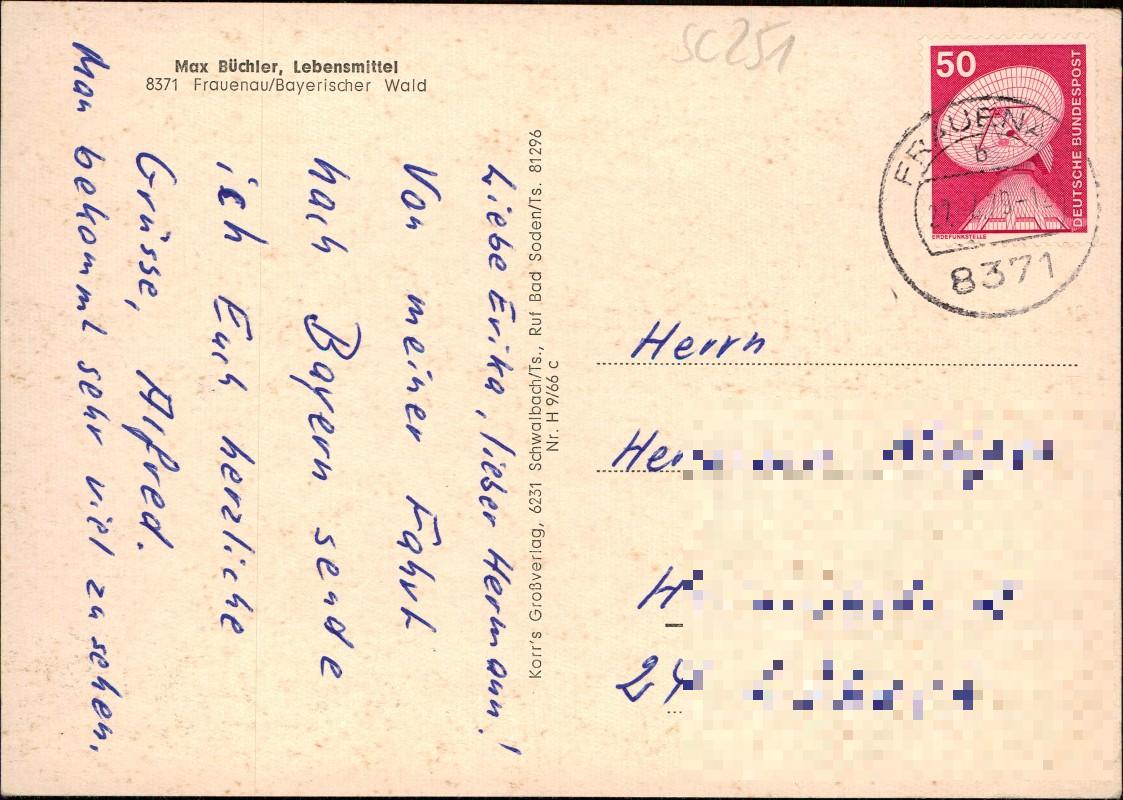 SC251
Max Büchler, Lebensmittel
8371 Frauenau/Bayerischer Wald
Liebe Erika, lieber Hermann!
Von meiner Fahrt
nach Bayern sende
ich Euch herzliche
Grüsse, Alfred.
Man bekommt sehr viel zu sehen.
Korr's Großverlag, 6231 Schwalbach/Ts., Ruf Bad Soden/Ts. 81296
Nr. H 9/66 c
50
DEUTSCHE BUNDESPOST
ERDEFUNKSTELLE
FRAUENAU
b
8371
Herrn
Her
H
24